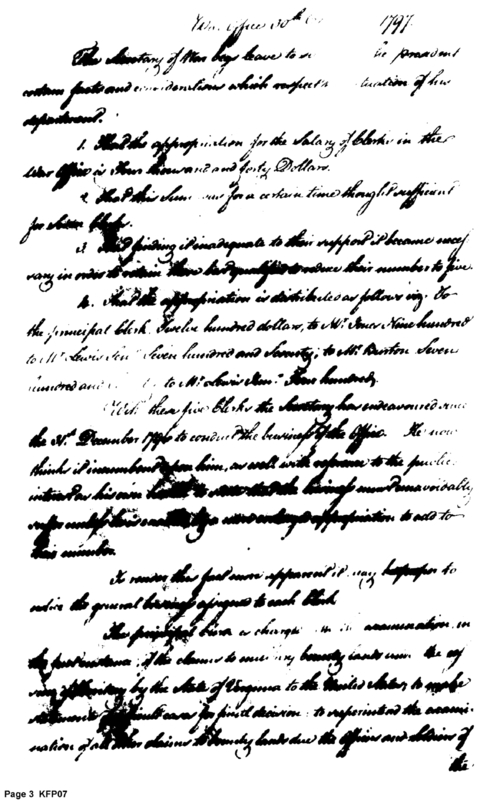 War Office 30th 1797.
The Secretary of War begs leave to president
certain facts and considerations which respect situation of his
department.
1. That the appropriation for the Salary of Clerks in the
War Office is Four thousand and forty Dollars.
2. That this Sum was for a certain time thought sufficient
for Clerks.
3. That finding it inadequate to their support it became neces
sary in order to retain those best qualified to reduce their number to five.
4. That the appropriation is distributed as follows viz. To
the principal Clerk Twelve hundred dollars, to Mr. Jones Nine hundred
to Mr. Lewis Senr. Seven hundred and Seventy; to Mr. Burton Seven
hundred and to Mr. Lewis Junr. Four hundred.
With these five Clerks the Secretary has endeavoured since
the 31st. December 1796 to conduct the business of the Office. He now
thinks it incumbent upon him, as well with reference to the public
interest as his own to state that the business must unavoidably
suffer unless he is enabled by a more enlarged appropriation to add to
their number.
To render this fact more apparent it may be proper to
notice the general business assigned to each Clerk
The principal is charged examination in
the first instance of the claims to military bounty lands under the
of territory by the State of Virginia to the United States, to make
statements of difficult cases for final decision to superintend the exami-
nation of all other claims to bounty lands due the Officers and Soldiers of
the
Page 3 KFP07